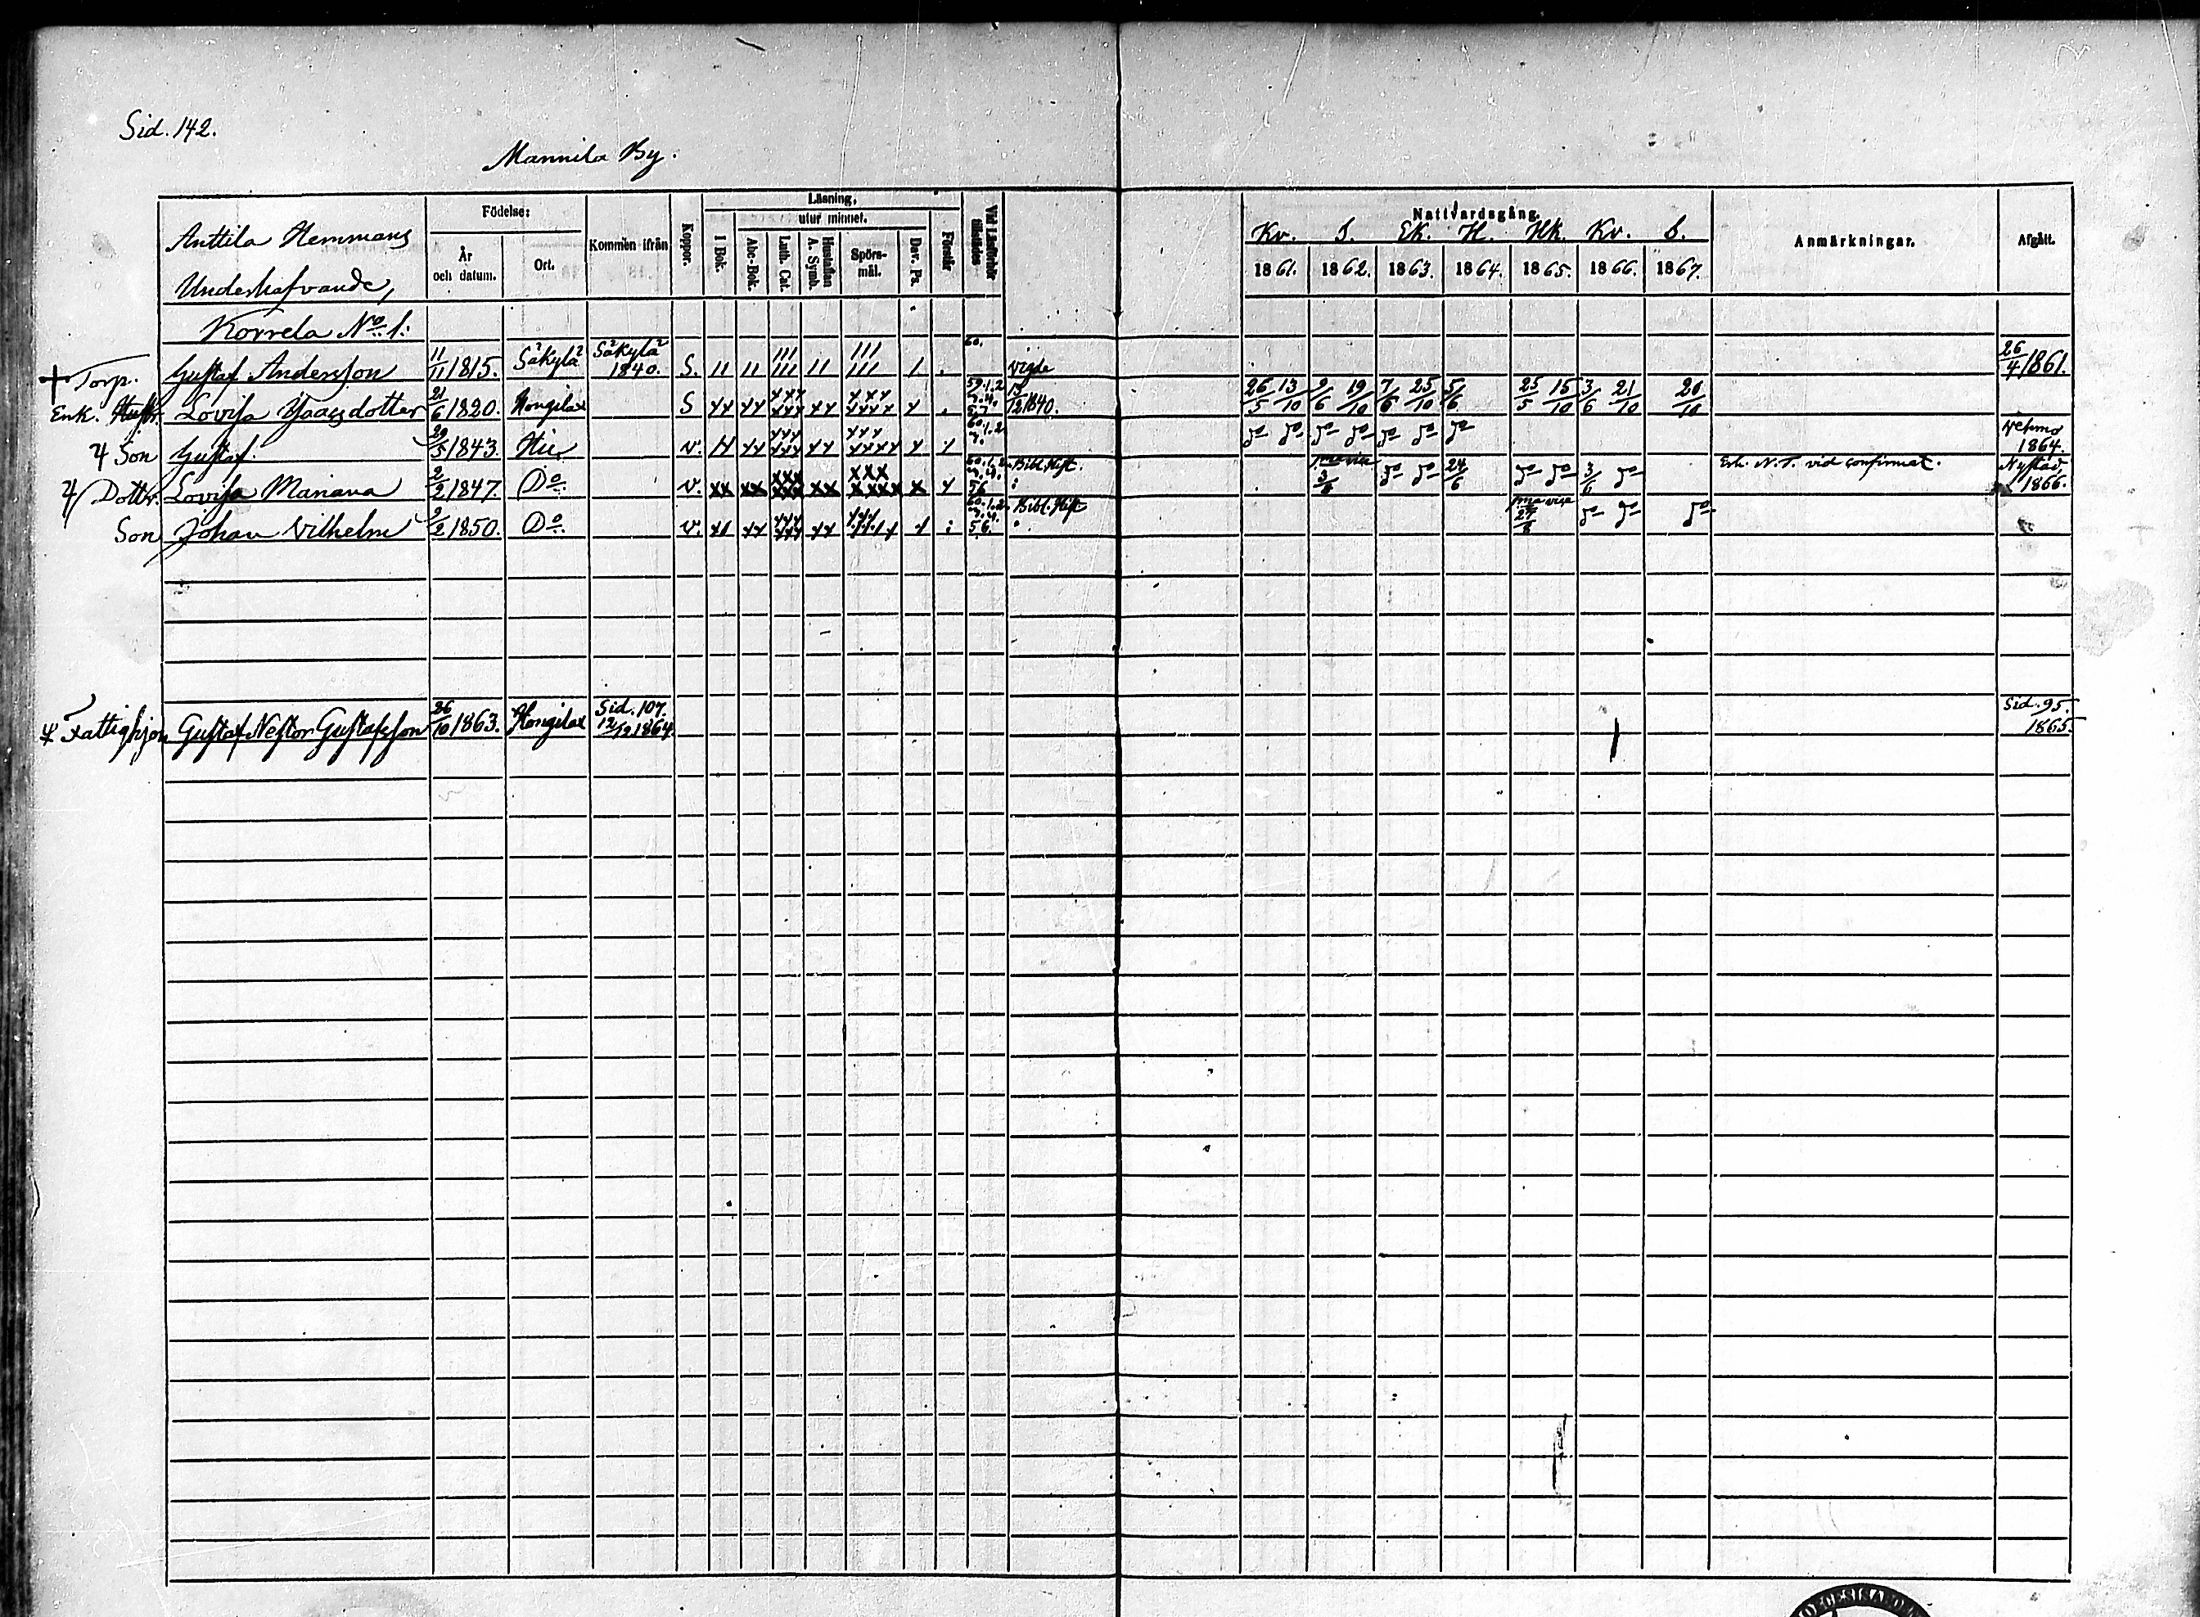 Sid. 142.
Mannila By.
Anttila Hemmans
Underhafvande,
Födelse:
År
och datum.
Ort.
Kommen ifrån
Koppor.
Läsning,
I Bok.
utur minnet.
Abc-Bok.
Luth. Cat.
Hustaflan
A. Symb.
Spörs-
mål.
Dav. Ps.
Förstår
Nattvardsgång.
Kv. S. Ek. H. Hk. Kv. S.
1861. 1862. 1863. 1864. 1865. 1866. 1867.
Anmärkningar.
Afgått.
Korrela No 1:
Torp. Gustaf Andersson 11/11 1815. Säkylä Säkylä 1840. S. 11 11 111 111 11 111 111 1 60. vigde 26/4 1861.
Enk. Hustr. Lovisa Isaacsdotter 21/6 1820. Hongilax S 13/12 1840. 26/5 13/10 9/6 19/10 7/6 25/10 5/6 25/5 15/10 3/6 21/10 20/10
Son Gustaf. 29/5 1843. Hic v. Do Do Do Do Do Do Do Vehmo 1864.
Dottr. Lovisa Mariana 2/2 1847. Do v. Bibl. Hist. 3/6 Do Do 24/6 Do Do 3/6 Do Erh. N. T. vid confirmat. Nystad 1866.
Son Johan Vilhelm 2/2 1850. Do v. Bibl. Hist. 27/8 Do Do Do
Fattighjon Gustaf Nestor Gustafsson 26/10 1863. Hongilax Sid. 107. 12/12 1864. Sid. 95. 1865.